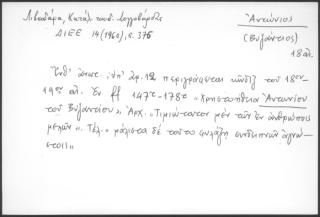 Λιβαδάρα, Κατάλ. κωδ. Λογγοβάρδας
ΔΙΕΕ 14 (1960), σ. 376
Ἀντώνιος
(Βυζάντιος)
18 αἰ.
ἀρ. 12 περιγράφεται κῶδιξ τοῦ 18ου-
19ου αἰ. Ἐν ff 147r-178r «Χρηστοήθεια Ἀντωνίου
τοῦ Βυζαντίου», Ἀρχ. «Τιμιώτατον μὲν τῶν ἐν ἀνθρώποις
Τέλ. «μάλιστα δὲ τοῦτο